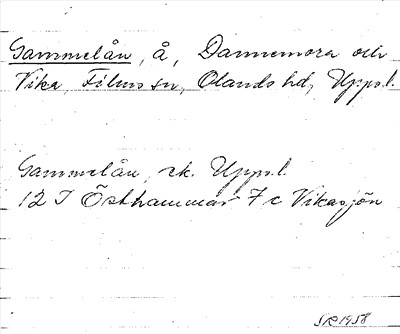 Gammelån, å, Dannemora och
Vika, Films sn, Olands hd, Uppsl.
Gammelån, ek. Uppsl.
12 I Östhammar 7 c Vikasjön
SR 1958